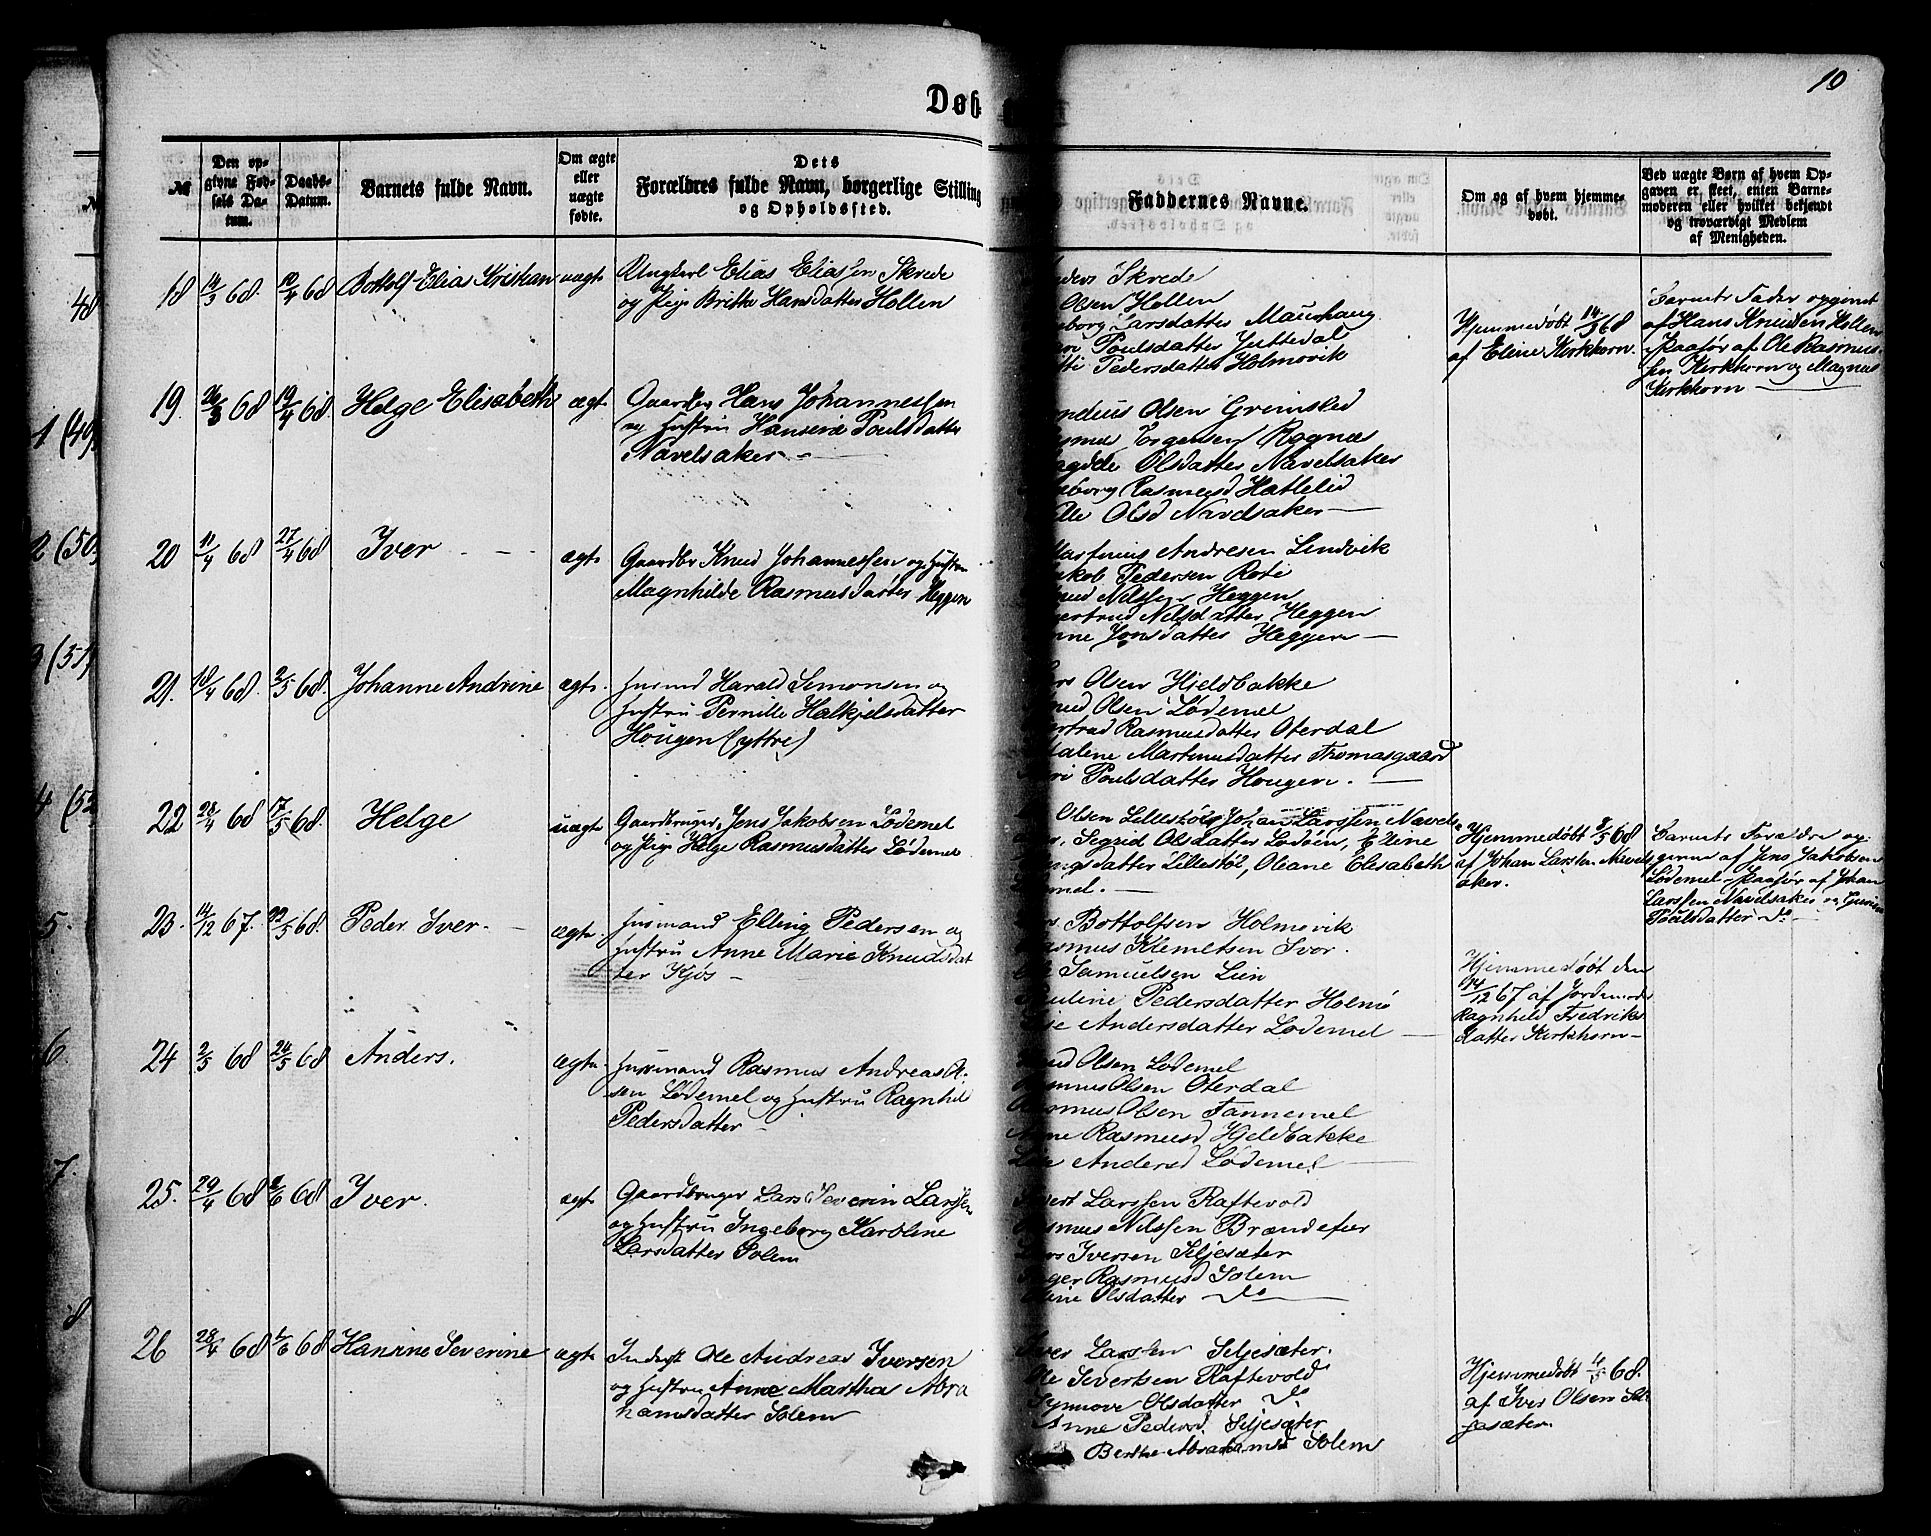 10
Døb
№
Den op-
givne Fød-
sels Da-
tum.
Daabs-
Datum.
Barnets fulde Navn.
Om ægte
eller
uægte
fødte.
Dets
Forældres fulde Navn, borgerlige Stilling
og Opholdssted.
Faddernes Navne.
Om og af hvem hjemme-
døbt.
Ved uægte Børn af hvem Op-
gaven er skeet, enten Barne-
moderen eller hvilket bekjendt
og troværdigt Medlem
af Menigheden.
18 14/3 68. 12/4 68 Bottolf Elias Kristian uægte Ungkarl Elias Eliassen Skrede
og Pige Brithe Hansdatter Hollen
Skrede
Olsen Hollen
Larsdatter Maurhaug
Poulsdatter Juttedal
Pedersdatter Holmovik
Hjemmedøbt 14/3 68
af Eline Kirkhorn.
Barnets Fader opgivet
af Hans Knudsen Hollen
Paahør af Ole Rasmus-
sen Kirkhorn og Magnus
Kirkhorn
19. 26/3 68 19/4 68. Helge Elisabeth ægte Gaardbr Hans Johannessen
og Hustru Hansine Poulsdatter
Navelsaker
Olsen Grimstad
Jørgensen Ragnæs
Olsdatter Navelsaker
Rasmusd Hatlelid
Olsd Navelsaker
20 11/4 68 27/4 68 Iver ægte Gaardbr Knud Johannessen og Hustru
Magnhilde Rasmusdatter Heggen
Martinius Andresen Lindvik
Jakob Pedersen Roti
Knud Nilssen Heggen
Gjertrud Nilsdatter Heggen
Jonsdatter Heggen
21. 18/4 68. 3/5 68. Johanne Andrine ægte. Husmd Harald Simonsen og
Hustru Pernille Halkjelsdatter
Hougen (yttre)
Olsen Hjeldbakke
Knud Olsen Lødemel
Gjertrud Rasmusdatter Oterdal
Martinusdatter Thomasgaard
Poulsdatter Hougen.
22 28/4 68 17/5 68. Helge uægte Gaardbruger Jens Jakobsen Lødemel
og Pige Helge Rasmusdatter Lødemel
Olsen Lillestøl, Johan Larssen Navels-
Sigrid Olsdatter Lødøen, Eline
datter Lillestøl, Oliane Elisabeth
Hjemmedøbt 3/5 68
af Johan Larssen Navels
aker.
Barnets Forældre op-
givne af Jens Jakobsen
Lødemel Paahør af Johan
Larssen Navelsaker og
Poulsdatter do
23. 14/12 67. 22/5 68. Peder Iver. ægte. Husmand Elling Pedersen og
Hustru Anne Marie Knudsdat
ter Kjøs
Bottolfsen Holmovik
Rasmus Klemetsen Svor.
Samuelsen Lien
Pauline Pedersdatter Holmø
Andersdatter Lødemel
Hjemmedøbt den
14/12 67 af Jordemoder
Ragnhild Fredriks
datter Kirkhorn
24 3/5 68 24/5 68 Anders. ægte. Husmand Rasmus Andreas A.
sen Lødemel og Hustru Ragnhild
Pedersdatter
Knud Olsen Lødemel
Rasmus Olsen Oterdal
Rasmus Olsen Tannemel
Anne Rasmusd Hjeldbakke
Andersd Lødemel
25. 29/4 68 68. Iver. ægte Gaardbruger Lars Severin Larssen
og Hustru Ingeborg Karoline
Larsdatter Solem
Sivert Larssen Raftevold
Rasmus Nilssen Brændefier
Lars Iversen Siljesæter
Inger Rasmusd Solem
Oline Olsdatter do
26 28/4 68 68 Hansine Severine ægte Inderst Ole Andreas Iversen
og Hustru Anne Martha Abra
hamsdatter Solem
Iver Larssen Siljesæter.
Ole Sivertsen Raftevold
Synnove Olsdatter do
Anne Pedersd. Siljesæter
Berthe Abrahamsd Solem
Hjemmedøbt 4/5 68.
af Iver Olsen Sil
jesæter.
48
1 (49)
2 (50)
3 (51)
4 (52)
5.
6.
7.
8